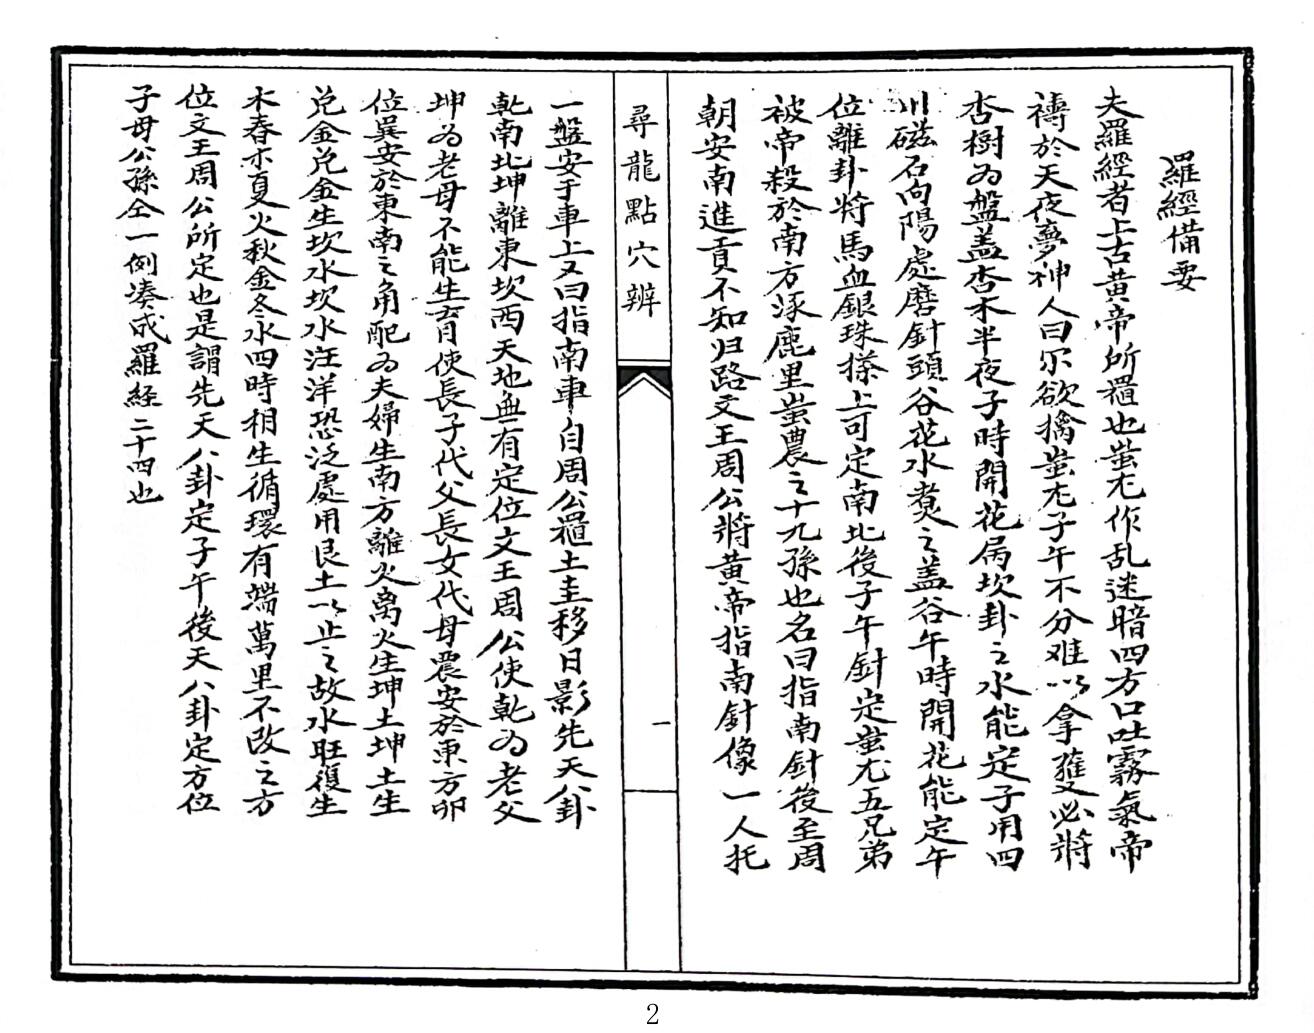 羅經備要
夫羅經者上古黄帝所置也蚩尤作乱迷暗四方口吐霧氣帝
禱於天夜夢神人曰尔欲擒蚩尤子午不分难以拿獲必將
杏樹为盤盖杏木半夜子時開花属坎卦之水能定子用四
川磁石向陽處磨針頭谷花水煑之盖谷午時開花能定午
位離卦將馬血銀珠搽上可定南北後子午針定蚩尤五兄弟
被帝殺於南方涿鹿里蚩農之十九孫也名曰指南針後至周
朝安南進貢不知归路文王周公將黄帝指南針像一人托
尋龍點穴辨
一
一盤安于車上又曰指南車自周公置土圭移日影先天八卦
乾南北坤離東坎西天地無有定位文王周公使乾为老父
坤为老母不能生育使長子代父長女代母震安於東方卯
位巽安於東南之角配为夫婦生南方離火离火生坤土坤土生
兑金兑金生坎水坎水汪洋恐泛處用艮土以止之故水旺復生
木春木夏火秋金冬水四時相生循環有端萬里不改之方
位文王周公所定也是謂先天八卦定子午後天八卦定方位
子母公孫仝一例凑成羅経二十四也
2